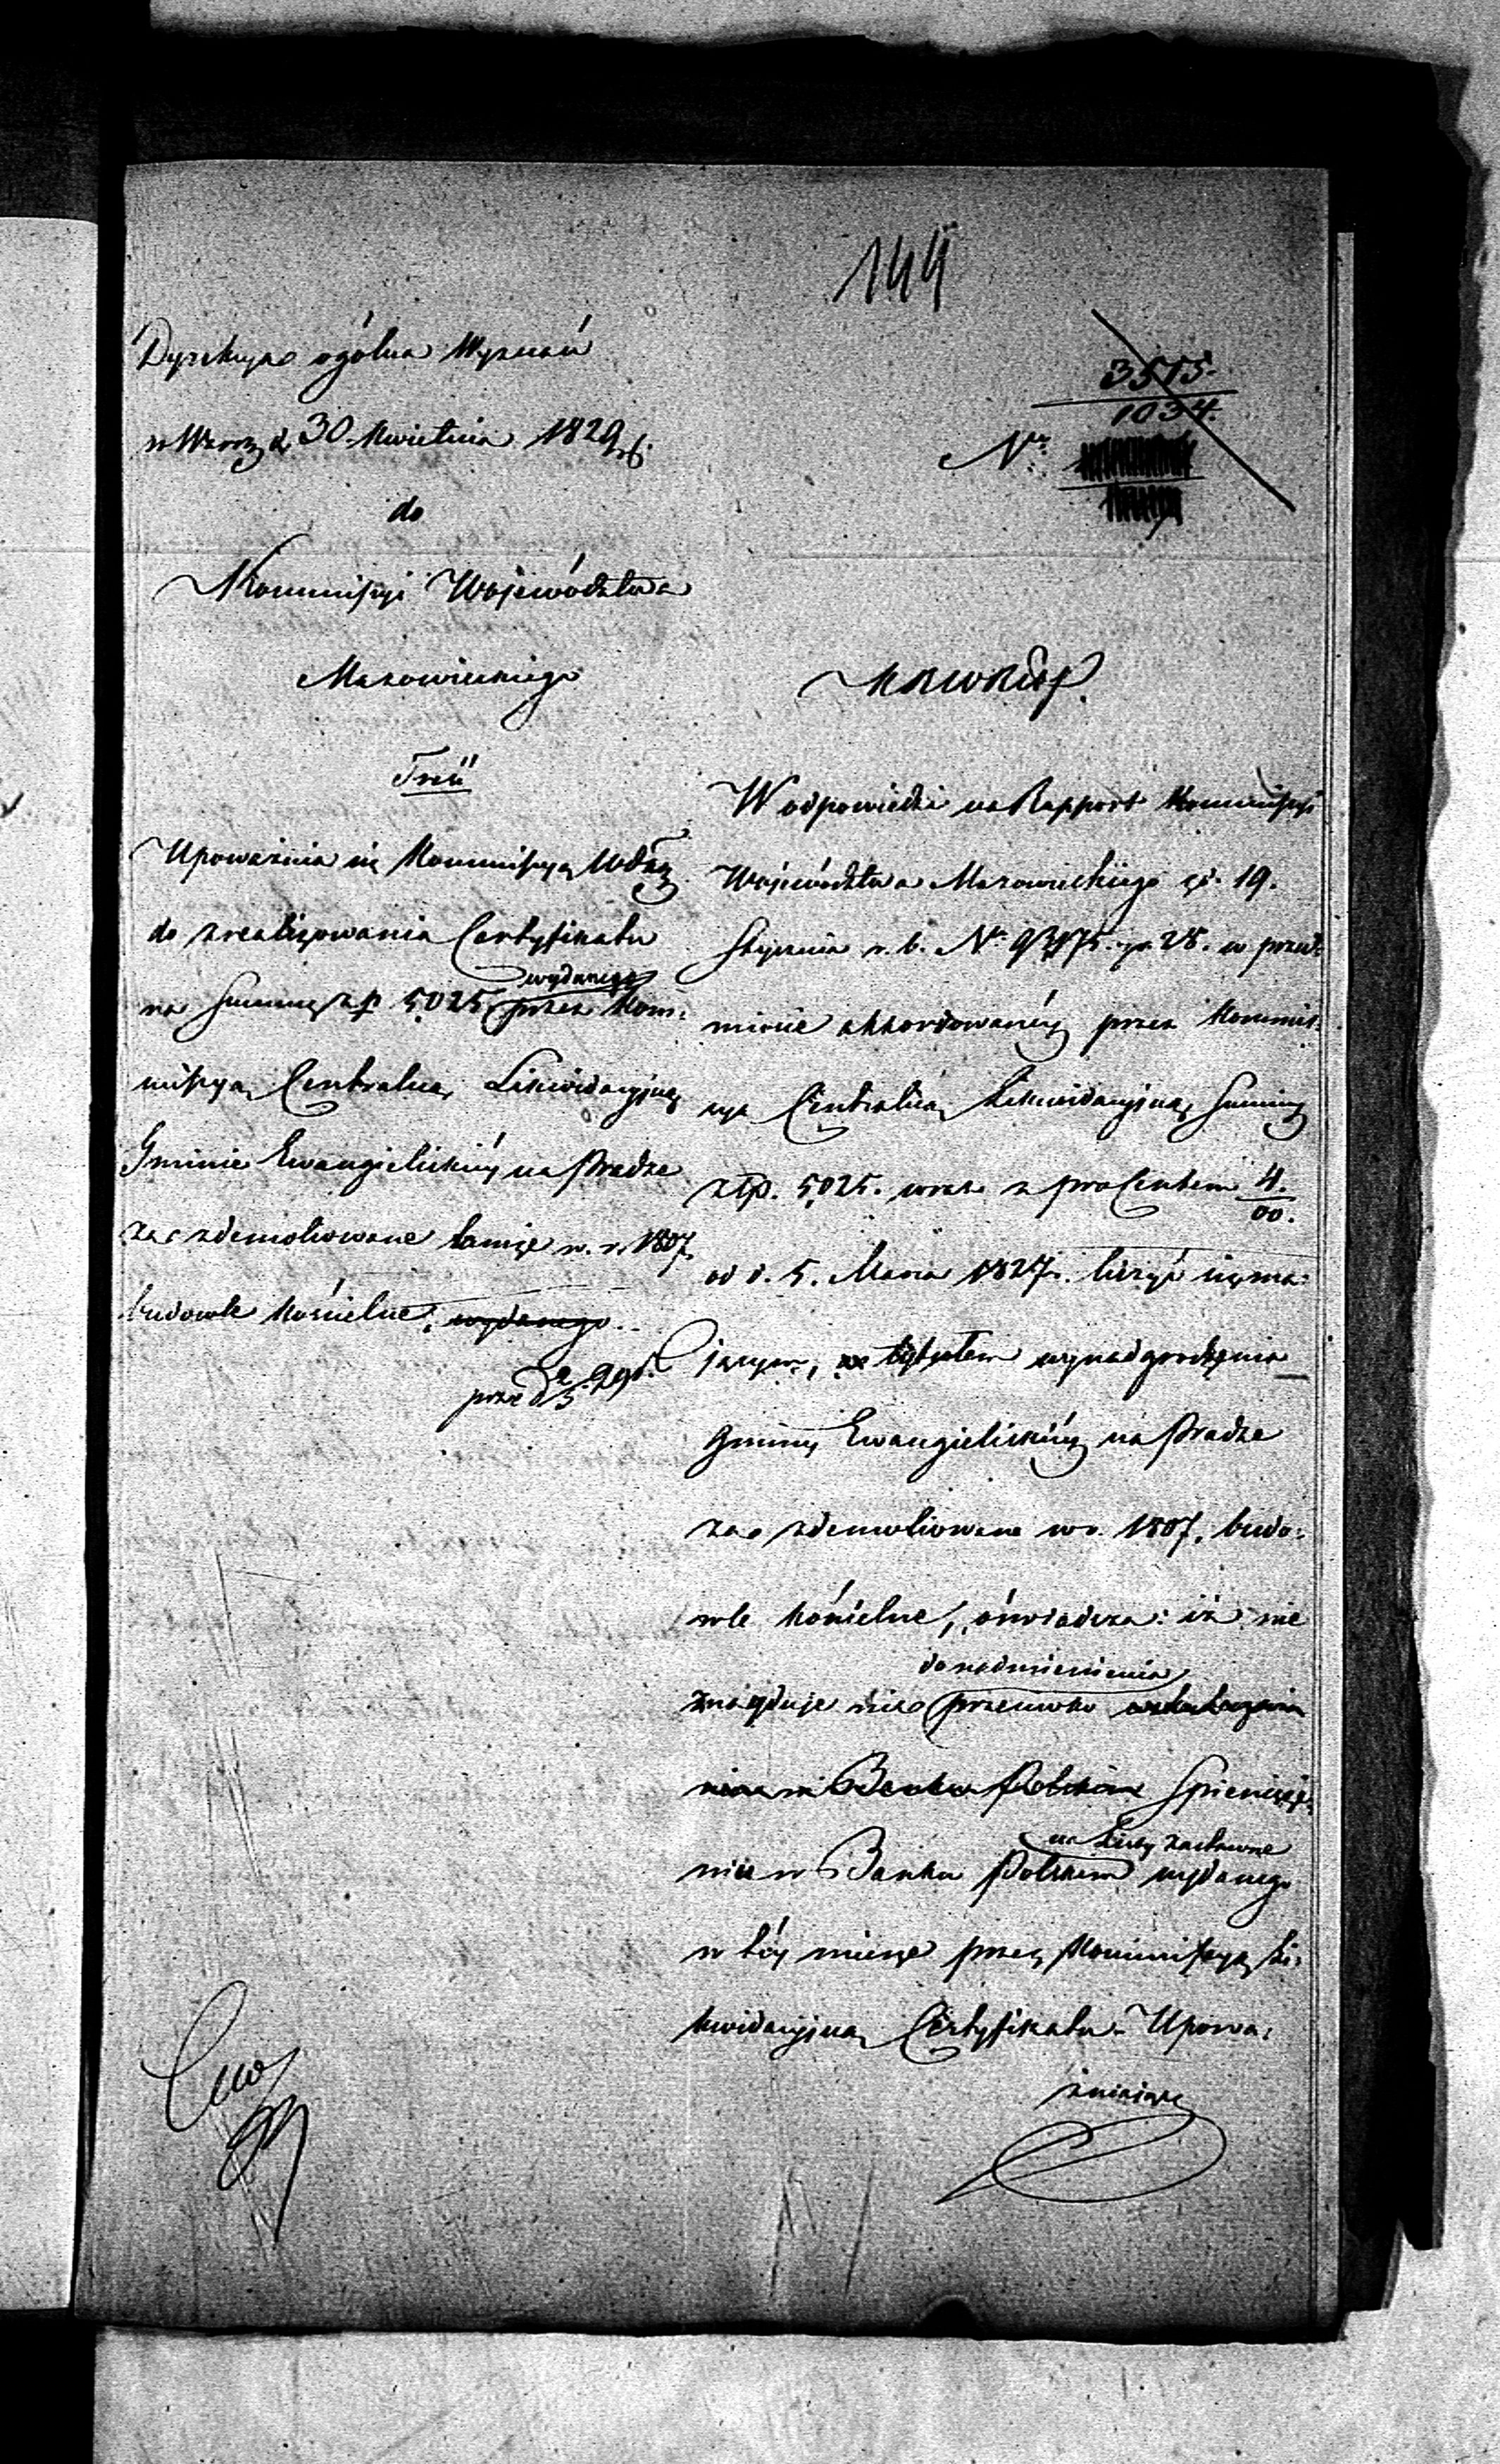 144
Dyrekcya ogólna Wyznań
w Warsz. d. 30 Kwietnia 1829 r.
do
Kommissyi Województwa
Mazowieckiego
Treść
Upoważnia się Kommissyą Wdzką
do zrealizowania Certyfikatu
wydanego
na Summę złp 5025 przez Kom=
missyą Centralną Likwidacyjną
Gminie Ewangelickiéy na Pradze
za zdemoliowane tamże w r. 1807
budowle kościelne, wydanego.
3515.
1034.
Nr.
W odpowiedzi na Rapport Kommissyi
Województwa Mazowieckiego z d. 19.
Stycznia r. b. Nr w przed=
miocie akkordowanéy przez Kommis=
syą Centralną Likwidacyjną Summy
złp. 5025. wraz z proCentem 4/00.
od d. 5. Marca 1827 r. liczyć się ma=
jącym, tytułem wynadgrodzenia
Gminy Ewangelickiéy na Pradze
za zdemoliowane w r. 1807. budo=
wle kościelne, oświadcza: iż nie
do nadmienienia
znayduje nic przeciwko
Banku Polskim Spienięże=
na Listy zastawne
niu w Banku Polskim wydanego
w téy mierze przez Kommissyą Li=
kwidacyjną Certyfikatu - Upowa=
żniając